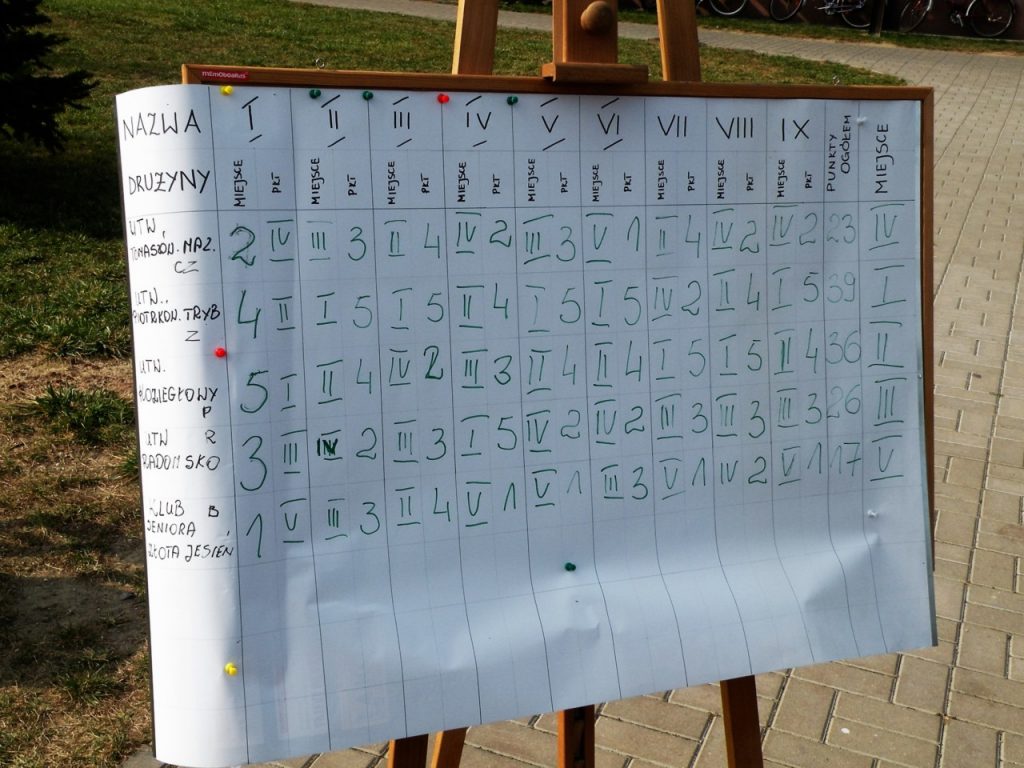 memoboards
NAZWA I II III IV V VI VII VIII IX PUNKTY OGÓŁEM MIEJSCE
DRUŻYNY MIEJSCE PKT MIEJSCE PKT MIEJSCE PKT MIEJSCE PKT MIEJSCE PKT MIEJSCE PKT MIEJSCE PKT MIEJSCE PKT MIEJSCE PKT
UTW,
TOMASZÓW. MAZ. 2 IV III 3 II 4 IV 2 III 3 V 1 II 4 IV 2 IV 2 23 IV
CZ
UTW..
PIOTRKOW. TRYB 4 II I 5 I 5 II 4 I 5 I 5 IV 2 II 4 I 5 39 I
Z
UTW.
5 I II 4 IV 2 III 3 II 4 II 4 I 5 I 5 II 4 36 II
P
UTW R
RADOMSKO 3 III IV 2 III 3 I 5 IV 2 IV 2 III 3 III 3 III 3 26 III
KLUB B
SENIORA, 1 V III 3 II 4 V 1 V 1 III 3 V 1 IV 2 V 1 17 V
ZŁOTA JESIEŃ